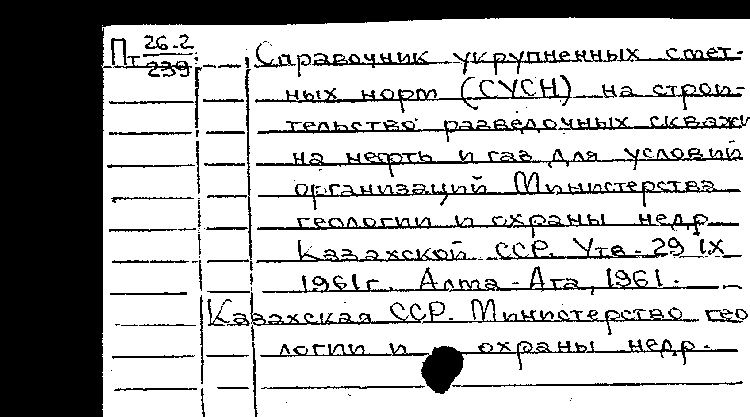 Пт 26-2
239
Справочник укрупненных смет-
ных норм (СУСН) на строи-
тельство разведочных скважи
на нефть и газ для условий
организаций Министерства
геологии и охраны недр
Казахской ССР. Утв. 29 IX
1961г. Алма-Ата, 1961.
Казахская ССР. Министерство гео
логии и охраны недр.